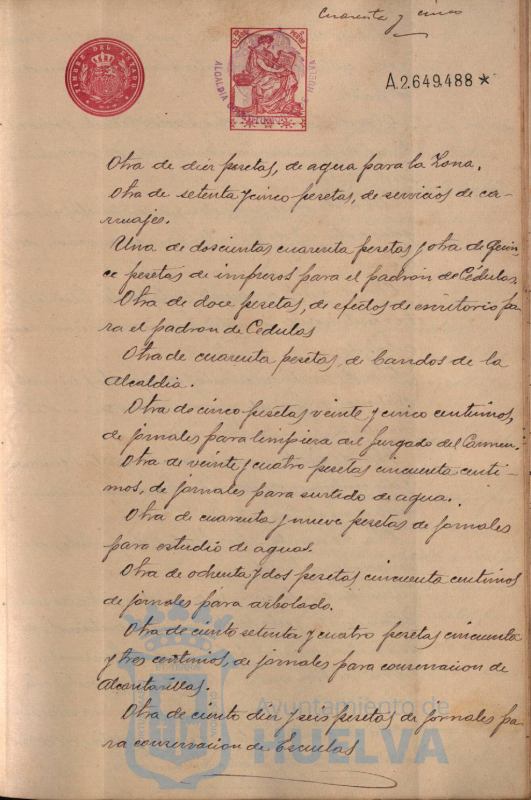 Cuarenta y cinco
TIMBRE DEL ESTADO
A.2.649.488*
Otra de diez pesetas, de agua para la Zona.
Otra de setenta y cinco pesetas, de servicios de ca-
rruajes.
Una de doscientas cuarenta pesetas y otra de Quin-
ce pesetas de impresos para el padrón de Cédulas,
Otra de doce pesetas, de efectos de escritorio pa-
ra el padron de Cedulas
Otra de cuarenta pesetas, de bandos de la
Alcaldia.
Otra de cinco pesetas veinte y cinco centimos,
de jornales para limpieza del Juzgado del Carmen.
Otra de veinte y cuatro pesetas cincuenta centi-
mos, de jornales para surtido de agua.
Otra de cuarenta y nueve pesetas de jornales
para estudio de aguas.
Otra de ochenta y dos pesetas cincuenta centimos
de jornales para arbolado.
Otra de ciento setenta y cuatro pesetas cincuenta
y tres centimos, de jornales para conservacion de
Alcantarillas.
Otra de ciento diez y seis pesetas de jornales pa-
ra conservacion de Escuelas
Ayuntamiento de
HUELVA